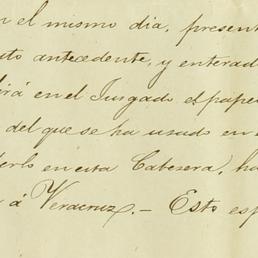 n el mismo dia, present
uto antecedente, y enterad
irá en el Juzgado el pape
del que se ha usado en
derlo en esta Cabesera, ha
á Veracruz.— Esto esp